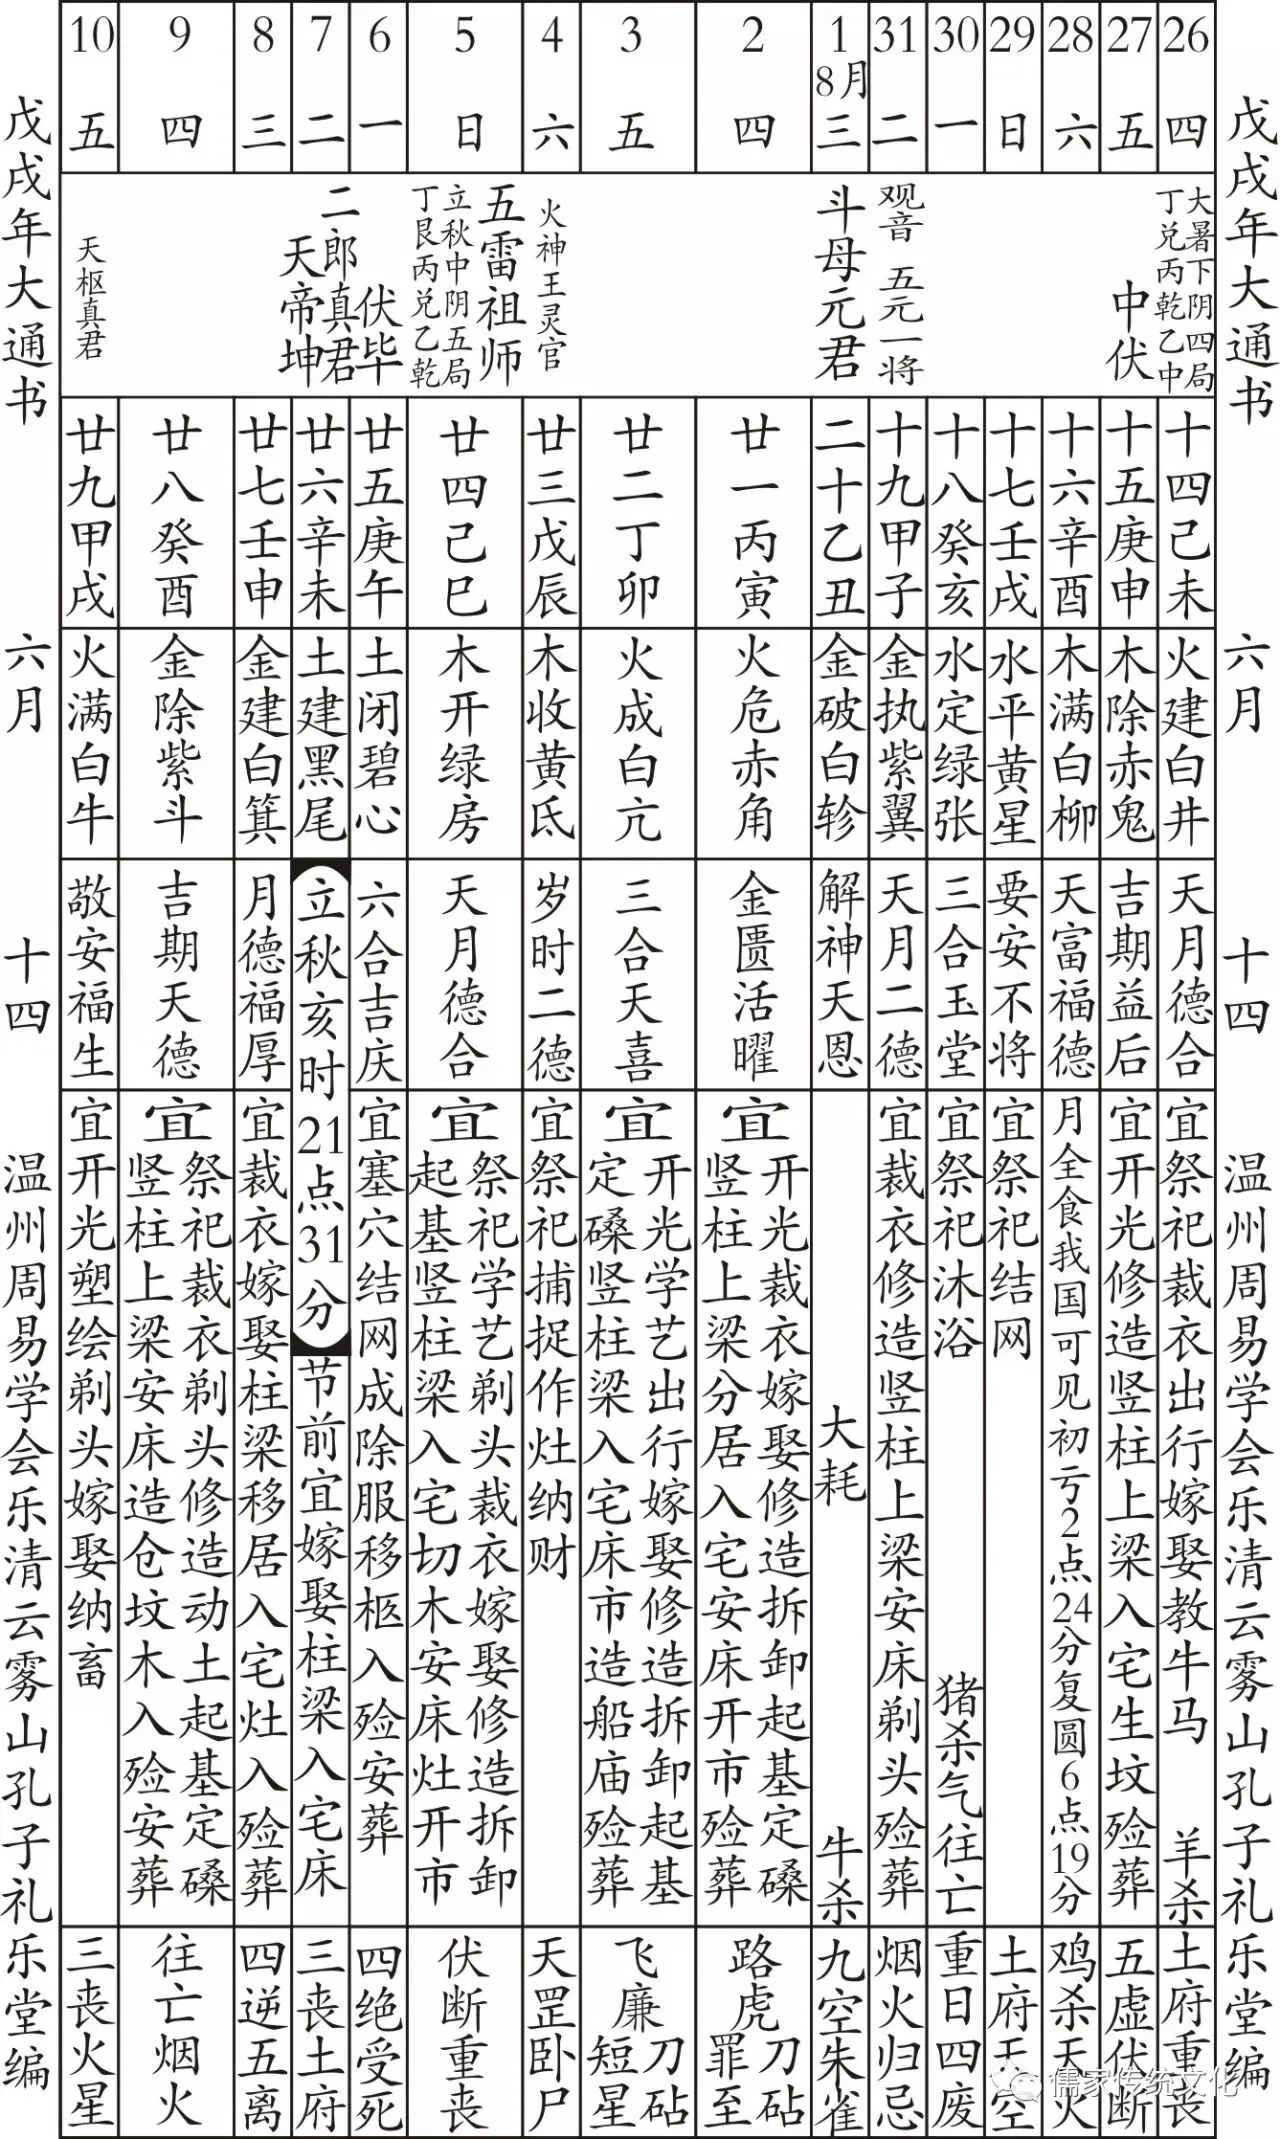 戊戌年大通书 六月 十四 温州周易学会乐清云雾山孔子礼乐堂编
26 四
大暑下阴四局
丁兑丙乾乙中
十四己未
火建白井
天月德合
宜祭祀裁衣出行嫁娶教牛马 羊杀
土府重丧
27 五
中伏
十五庚申
木除赤鬼
吉期益后
宜开光修造竖柱上梁入宅生坟殓葬
五虚伏断
28 六
十六辛酉
木满白柳
天富福德
月全食我国可见初亏2点24分复圆6点19分
鸡杀天火
29 日
十七壬戌
水平黄星
要安不将
宜祭祀结网
土府天空
30 一
十八癸亥
水定绿张
三合玉堂
宜祭祀沐浴 猪杀气往亡
重日四废
31 二
观音 五元一将
十九甲子
金执紫翼
天月二德
宜裁衣修造竖柱上梁安床剃头殓葬
烟火归忌
1 8月 三
斗母元君
二十乙丑
金破白轸
解神天恩
大耗 牛杀
九空朱雀
2 四
廿一丙寅
火危赤角
金匮活曜
宜
开光裁衣嫁娶修造拆卸起基定磉
竖柱上梁分居入宅安床开市殓葬
路虎
刀砧
罪至
3 五
廿二丁卯
火成白亢
三合天喜
宜
开光学艺出行嫁娶修造拆卸起基
定磉竖柱梁入宅床市造船庙殓葬
飞廉
刀砧
短星
4 六
火神王灵官
廿三戊辰
木收黄氐
岁时二德
宜祭祀捕捉作灶纳财
天罡卧尸
5 日
五雷祖师
立秋中阴五局
丁艮丙兑乙乾
廿四己巳
木开绿房
天月德合
宜
祭祀学艺剃头裁衣嫁娶修造拆卸
起基竖柱梁入宅切木安床灶开市
伏断重丧
6 一
伏毕
廿五庚午
土闭碧心
六合吉庆
宜塞穴结网成除服移柩入殓安葬
四绝受死
7 二
二郎真君
天帝坤
廿六辛未
土建黑尾
立秋亥时21点31分
节前宜嫁娶柱梁入宅床
三丧土府
8 三
廿七壬申
金建白箕
月德福厚
宜裁衣嫁娶柱梁移居入宅灶入殓葬
四逆五离
9 四
廿八癸酉
金除紫斗
吉期天德
宜
祭祀裁衣剃头修造动土起基定磉
竖柱上梁安床造仓坟木入殓安葬
往亡烟火
10 五
天枢真君
廿九甲戌
火满白牛
敬安福生
宜开光塑绘剃头嫁娶纳畜
三丧火星
戊戌年大通书 六月 十四 温州周易学会乐清云雾山孔子礼乐堂编
儒家传统文化